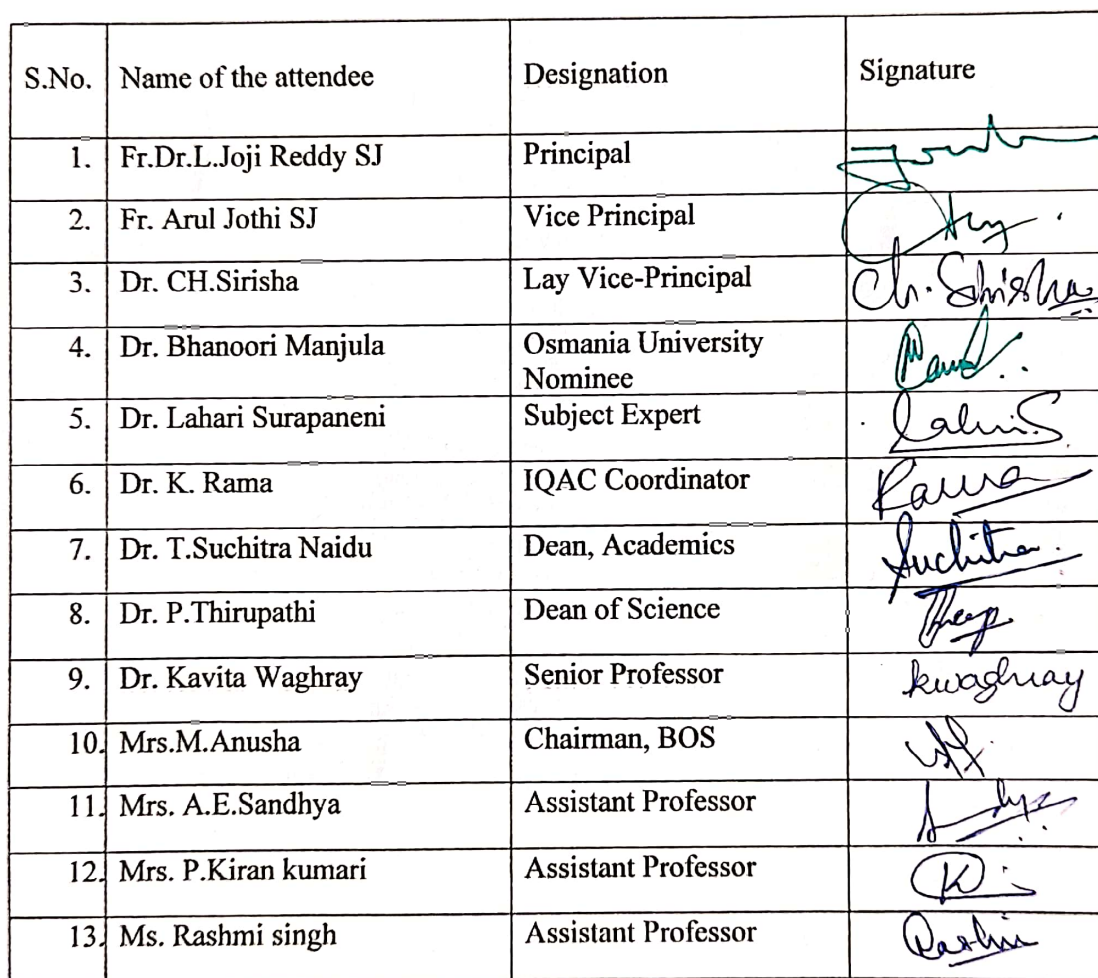 S.No. Name of the attendee Designation Signature
1. Fr.Dr.L.Joji Reddy SJ Principal
2. Fr. Arul Jothi SJ Vice Principal
3. Dr. CH.Sirisha Lay Vice-Principal Ch. Sirisha
4. Dr. Bhanoori Manjula Osmania University
Nominee
5. Dr. Lahari Surapaneni Subject Expert Lahari.S
6. Dr. K. Rama IQAC Coordinator Rama
7. Dr. T.Suchitra Naidu Dean, Academics Suchitra
8. Dr. P.Thirupathi Dean of Science
9. Dr. Kavita Waghray Senior Professor kwaghray
10. Mrs.M.Anusha Chairman, BOS
11. Mrs. A.E.Sandhya Assistant Professor
12. Mrs. P.Kiran kumari Assistant Professor
13. Ms. Rashmi singh Assistant Professor Rashmi